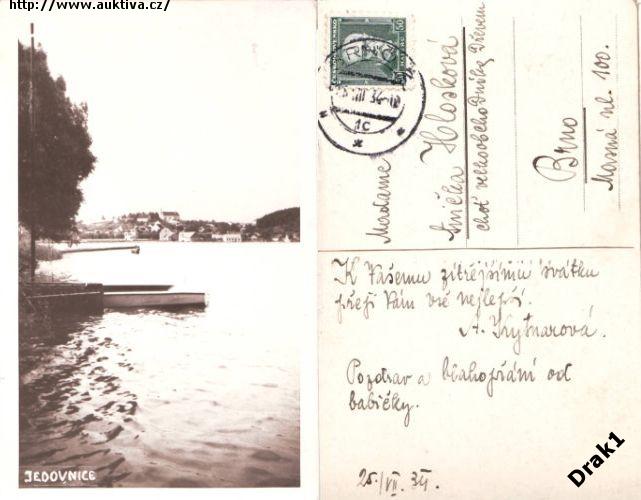 http://www.auktiva.cz/
JEDOVNICE
ČESKOSLOVENSKO
50
BRNO
VII 34
1c
Madame
Anéka Hlosková
choť velkoobchodníka dřevem
Brno
Masná ul. 100.
K Vašemu zítřejšímu svátku
přeji Vám vše nejlepší.
A. Kytnarová.
Pozdrav a blahopřání od
babičky.
25./VII. 34.
Drak1